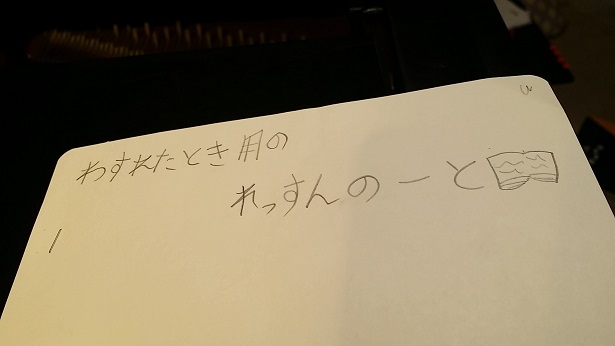 わすれたとき用の
れっすんのーと